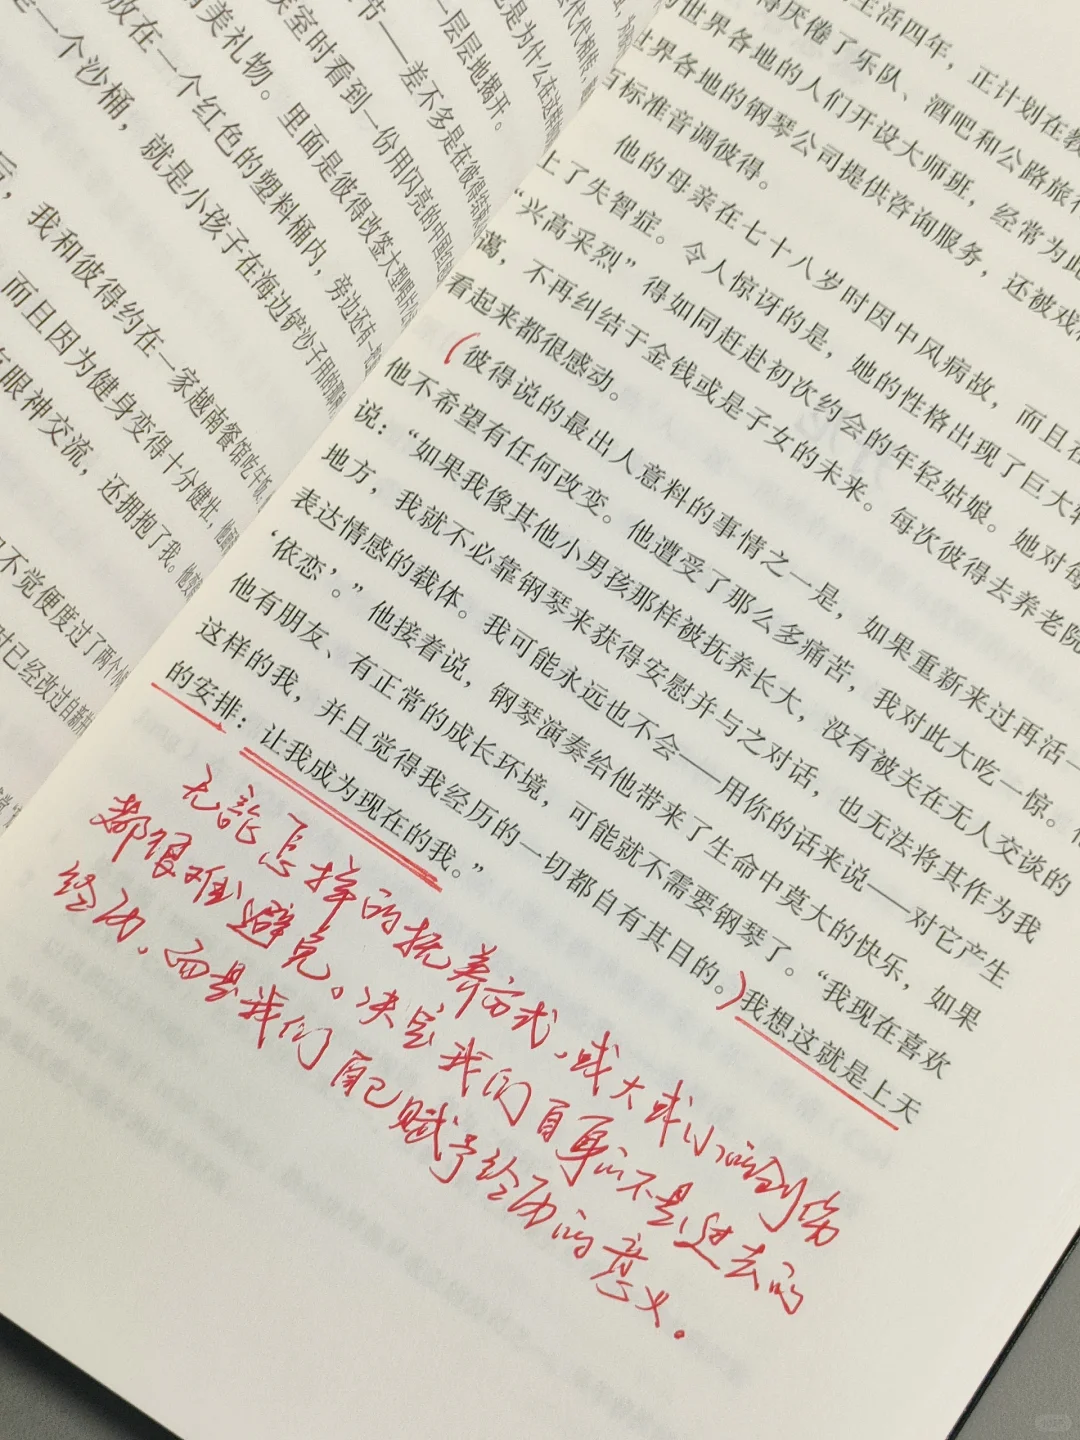 放在一个红色的塑料桶内，旁边还有一
是一个沙桶，就是小孩子在海边铲沙子用的那种
后，我和彼得约在一家越南餐馆吃午饭
而且因为健身变得十分健壮，他
眼神交流，还拥抱了我。他
不觉便度过了两个小
时已经改过自新
生活四年，正计划在教
得厌倦了乐队、酒吧和公路旅行
的世界各地的人们开设大师班，经常为此
世界各地的钢琴公司提供咨询服务，还被戏称
百标准音调彼得。
他的母亲在七十八岁时因中风病故，而且在
上了失智症。令人惊讶的是，她的性格出现了巨大转
“兴高采烈”得如同赶赴初次约会的年轻姑娘。她对每
蔼，不再纠结于金钱或是子女的未来。每次彼得去养老院
看起来都很感动。
彼得说的最出人意料的事情之一是，如果重新来过再活一
他不希望有任何改变。他遭受了那么多痛苦，我对此大吃一惊。他
说：“如果我像其他小男孩那样被抚养长大，没有被关在无人交谈的
地方，我就不必靠钢琴来获得安慰并与之对话，也无法将其作为我
表达情感的载体。我可能永远也不会——用你的话来说——对它产生
‘依恋’。”他接着说，钢琴演奏给他带来了生命中莫大的快乐，如果
他有朋友、有正常的成长环境，可能就不需要钢琴了。“我现在喜欢
这样的我，并且觉得我经历的一切都自有其目的。我想这就是上天
的安排：让我成为现在的我。”
无论怎样的抚养方式，或大或小的创伤
都很难避免。决定我们自身的不是过去的
经历，而是我们自己赋予经历的意义。